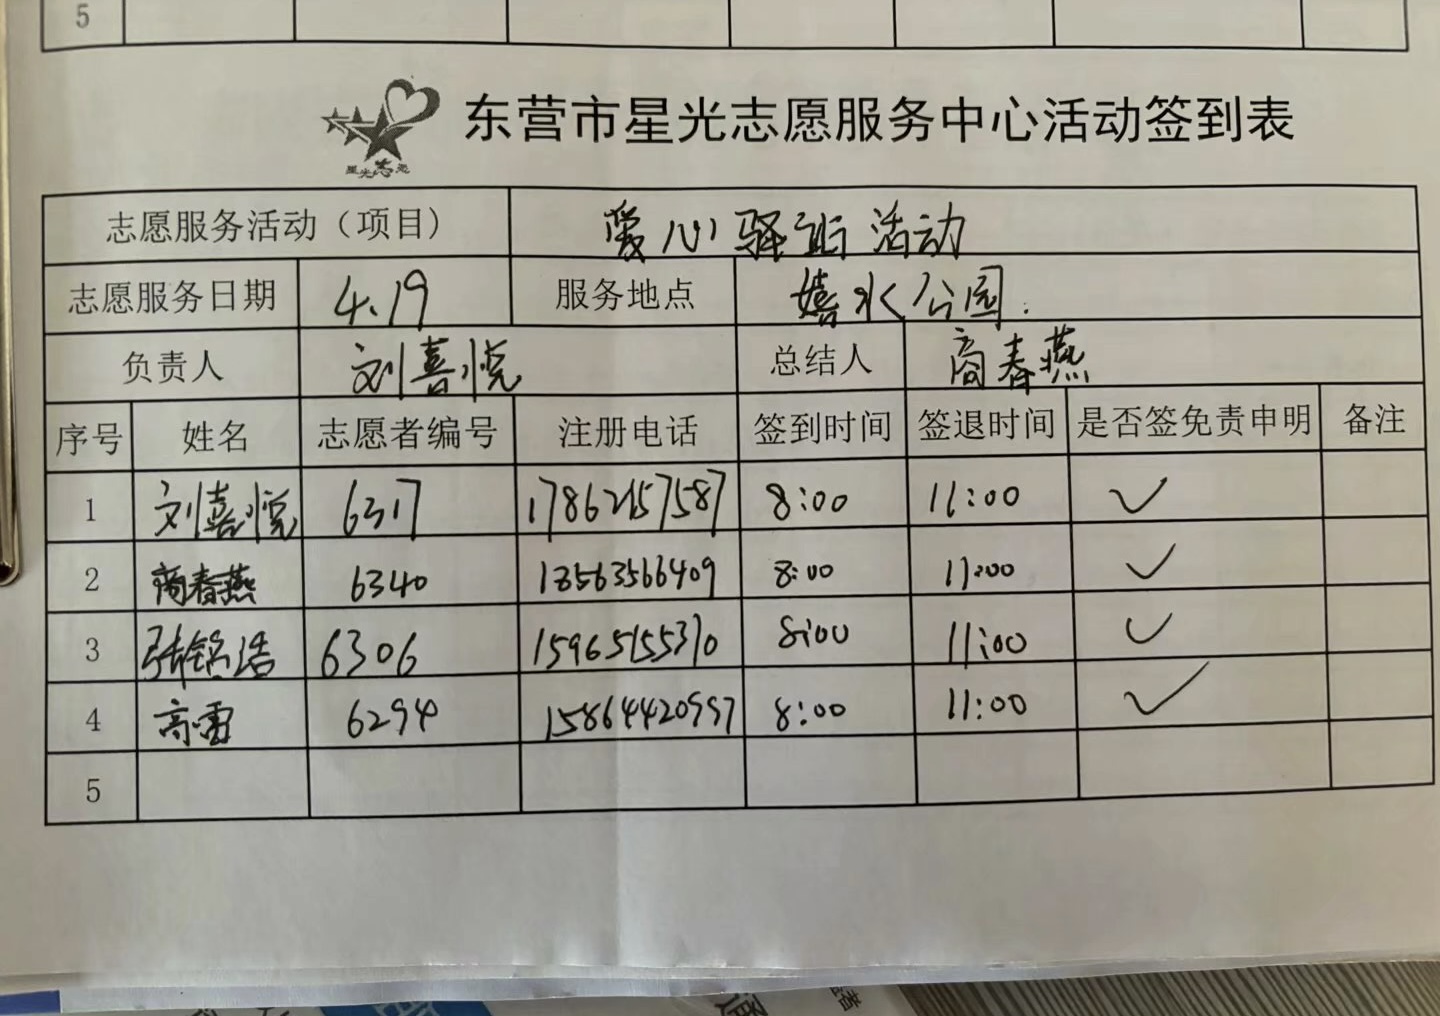 5
星光志愿
东营市星光志愿服务中心活动签到表
志愿服务活动（项目） 爱心驿站活动
志愿服务日期 4.19 服务地点 嬉水公园.
负责人 刘喜悦 总结人 商春燕
序号 姓名 志愿者编号 注册电话 签到时间 签退时间 是否签免责申明 备注
1 刘喜悦 6317 17862157587 8:00 11:00 ✓
2 商春燕 6340 18563566409 8:00 11:00 ✓
3 张铭浩 6306 15965155370 8:00 11:00 ✓
4 高雷 6294 8:00 11:00 ✓
5
通